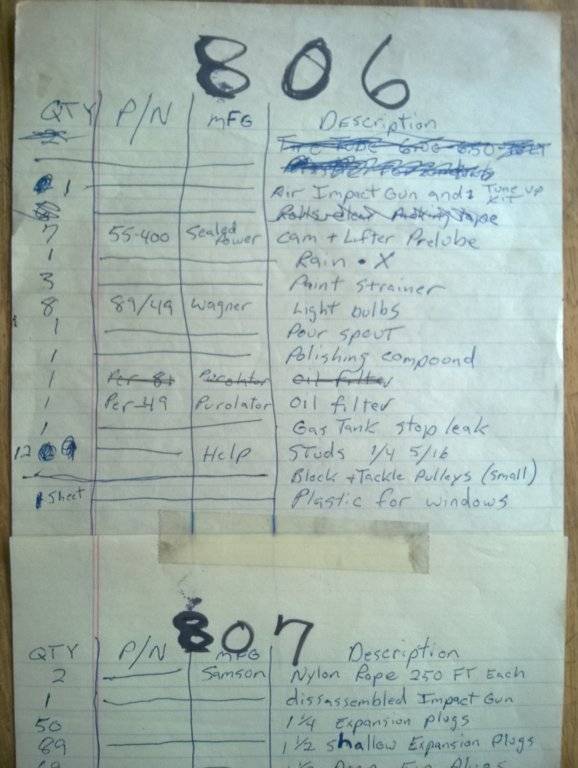 806
QTY P/N MFG Description
1 Air Impact Gun and Tune up Kit
7 55-400 Sealed Power Cam + Lifter Prelube
1 Rain • X
3 Paint strainer
8 89/49 Wagner Light bulbs
1 Pour spout
1 Polishing compound
1 Per-81 Purolator Oil filter
1 Per-49 Purolator Oil filter
1 Gas Tank stop leak
12 Help Studs 1/4 5/16
Block + Tackle Pulleys (small)
1 sheet Plastic for windows
807
QTY P/N MFG Description
2 Samson Nylon Rope 250 FT Each
1 dissassembled Impact Gun
50 1 1/4 Expansion plugs
89 1 1/2 shallow Expansion Plugs